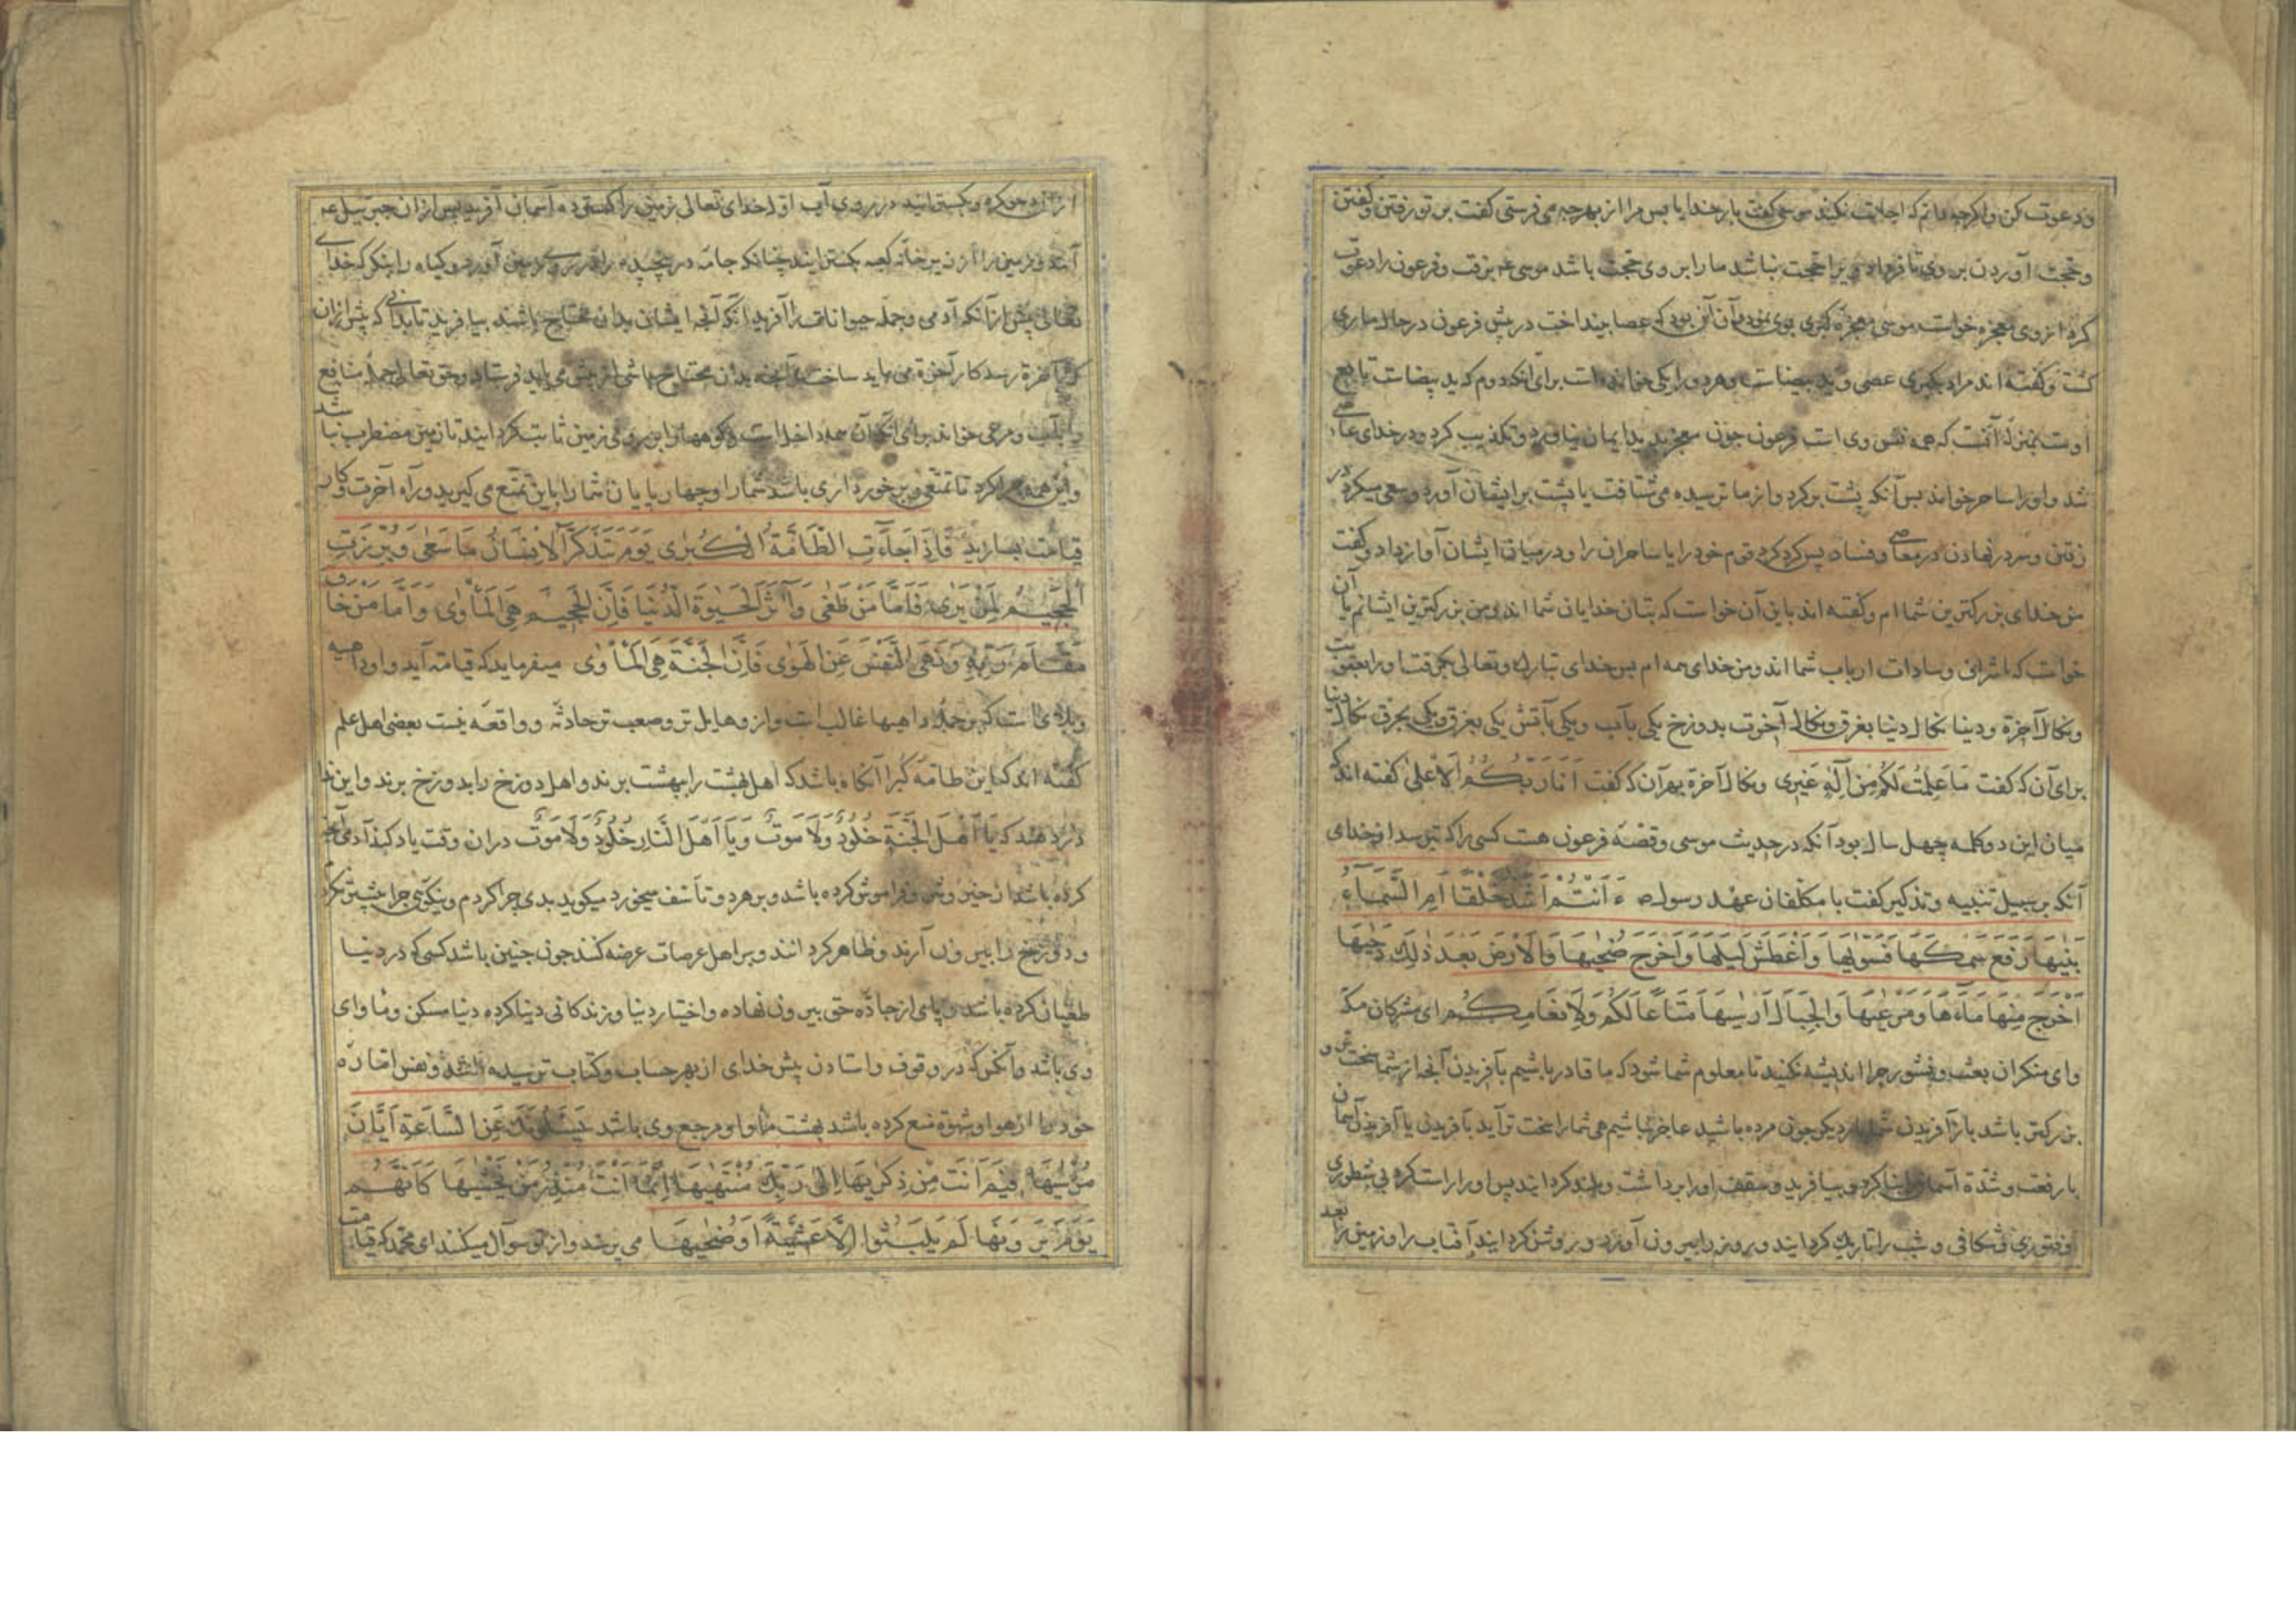 ودعوت کن واکرچه دانم که اجابت نکند موسی کفت بار خدایا پس مرا از بهر چه می فرستی کفت بر تو رفتن وکفتن
وحجت آوردن بر وی تا فردا ویرا حجت نباشد ما را بر وی حجت باشد موسی ع برفت وفرعون را دعوت
کرد از وی معجزه خواست موسی معجزه کبری بوی نمود وآن آن بود که عصا بینداخت در پیش فرعون در حال ماری
کشت وکفته اند مراد بکبری عصی وید بیضاست وهر دو را یکی خوانده است برای آنکه دوم که ید بیضاست تابع
اوست بمنزله آنست که همه نفس وی است فرعون چون معجزه بدید ایمان نیاورد وتکذیب کرد ودر خدای عاصی
شد واورا ساحر خواند پس آنکه پشت برکرد واز ما ترسیده می شتافت یا پشت بر ایشان آورد وسعی میکرد در
رفتن وسر در نهادن در معاصی وفساد پس کرد کرد قوم خود را یا ساحران را ودر میان ایشان آواز داد وکفت
من خدای بزرکترین شماام وکفته اند باین آن خواست که بتان خدایان شما اند ومن بزرکترین ایشانم یا آن
خواست که اشراف وسادات ارباب شما اند ومن خدای همه ام پس خدای تبارك وتعالی بکرفت اورا بعقوبت
ونکال آخرة ودنیا نکال دنیا بغرق ونکال آخرت بدوزخ یکی بآب ویکی بآتش یکی بغرق ویکی بحرق نکال دنیا
برای آن که کفت مَا عَلِمْتُ لَكُمْ مِنْ اِلٰهٍ غَیْرِی ونکال آخرة بهر آن که کفت اَنَا رَبُّكُمُ الْاَعْلیٰ کفته اند که
میان این دو کلمه چهل سال بود آنکه در حدیث موسی وقصّه فرعون هست کسی را که بترسد از خدای
آنکه بر سبیل تنبیه وتذکیر کفت با مکلفان عهد رسول ص ءَاَنْتُمْ اَشَدُّ خَلْقًا اَمِ السَّمَآءُ
بَنٰیهَا رَفَعَ سَمْكَهَا فَسَوّٰیهَا وَاَغْطَشَ لَیْلَهَا وَاَخْرَجَ ضُحٰیهَا وَالْاَرْضَ بَعْدَ ذٰلِكَ دَحٰیهَا
اَخْرَجَ مِنْهَا مَآءَهَا وَمَرْعٰیهَا وَالْجِبَالَ اَرْسٰیهَا مَتَاعًا لَكُمْ وَلِاَنْعَامِكُمْ ای مشرکان مکه
وای منکران بعث ونشور چرا اندیشه نکنید تا معلوم شما شود که ما قادر باشیم بآفریدن آنچه از شما سخت تر و
بزرکتر باشد باز آفریدن شما بار دیکر چون مرده باشید عاجز نباشیم هی شما را سخت تر آید بآفریدن یا آفریدن آسمان
با رفعت وشدّة آسمان را بنا کرد وبیافرید وسقف اورا برداشت وبلند کردانید پس اورا راست کرد بی شطوری
وفتوری وشکافی وشب را تاریك کردانید وروز را بیرون آورد وروشن کردانید آفتاب را وزمین را بعد
از آن دحو کرد وبکسترانید در روی آب اول خدای تعالی زمین را کسترده آسمان آفرید پس از آن جبرئیل ع
آمد وزمین را از زیر خانه کعبه بکسترانید چنانکه جامه در پیچیده را بیرون آورد وکیاه را بنکر که خدای
تعالی پیش از آنکه آدمی وجمله حیوانات را آفرید آنکه آنچه ایشان بدان محتاج باشند بیافرید تا بدانی که پیش از آن
که آخرة رسد کار آخرة می باید ساخت وآنچه بدان محتاج باشی از پیش می باید فرستاد وحق تعالی جمله منافع
را آب ومرعی خواند برای آنکه آن همه داخل است وکوهها را بر روی زمین ثابت کردانید تا زمین مضطرب نباشد
واین همه چرا کرد تا تمتّعی وبرخورداری باشد شما را وچهار پایان شما را باین تمتّع می کیرید وراه آخرت وکار
قیامت بسازید فَاِذَا جَآءَتِ الطَّآمَّةُ الْكُبْرٰی یَوْمَ یَتَذَكَّرُ الْاِنْسَانُ مَا سَعٰی وَبُرِّزَتِ
الْجَحِیمُ لِمَنْ یَرٰی فَاَمَّا مَنْ طَغٰی وَاٰثَرَ الْحَیٰوةَ الدُّنْیَا فَاِنَّ الْجَحِیمَ هِیَ الْمَاْوٰی وَاَمَّا مَنْ خَافَ
مَقَامَ رَبِّهِ وَنَهَی النَّفْسَ عَنِ الْهَوٰی فَاِنَّ الْجَنَّةَ هِیَ الْمَاْوٰی میفرماید که قیامت آید واو داهیه
وبلای است که بر جمله داهیها غالب است واز وهایل تر وصعب تر حادثه وواقعه نیست بعضی اهل علم
کفته اند که این طامّه کبرا آنکاه باشد که اهل بهشت را ببهشت برند واهل دوزخ را بدوزخ برند واین ندا
در دهند که یَا اَهْلَ الْجَنَّةِ خُلُودٌ وَلَا مَوْتَ وَیَا اَهْلَ النَّارِ خُلُودٌ وَلَا مَوْتَ در آن وقت یاد کند آدمی آنچه
کرده باشد از خیر وشر وفراموش کرده باشد وبر هر دو تأسّف میخورد میکوید بدی چرا کردم ونیکوئی چرا بیشتر نکردم
ودوزخ را بیرون آرند وظاهر کردانند وبر اهل عرصات عرضه کنند چون چنین باشد کسی که در دنیا
طغیان کرده باشد وپای از جادّه حق بیرون نهاده واختیار دنیا وزندکانی دنیا کرده دنیا مسکن وماوای
وی باشد وآنکس که در وقوف واستادن پیش خدای از بهر حساب وکتاب ترسیده باشد ونفس امّاره
خود را از هوا وشهوة منع کرده باشد بهشت ماوا ومرجع وی باشد یَسْئَلُونَكَ عَنِ السَّاعَةِ اَیَّانَ
مُرْسٰیهَا فِیمَ اَنْتَ مِنْ ذِكْرٰیهَا اِلٰی رَبِّكَ مُنْتَهٰیهَا اِنَّمَا اَنْتَ مُنْذِرُ مَنْ یَخْشٰیهَا كَاَنَّهُمْ
یَوْمَ یَرَوْنَهَا لَمْ یَلْبَثُوا اِلَّا عَشِیَّةً اَوْ ضُحٰیهَا می پرسند واز تو سوآل میکنند ای محمّد که قیامت